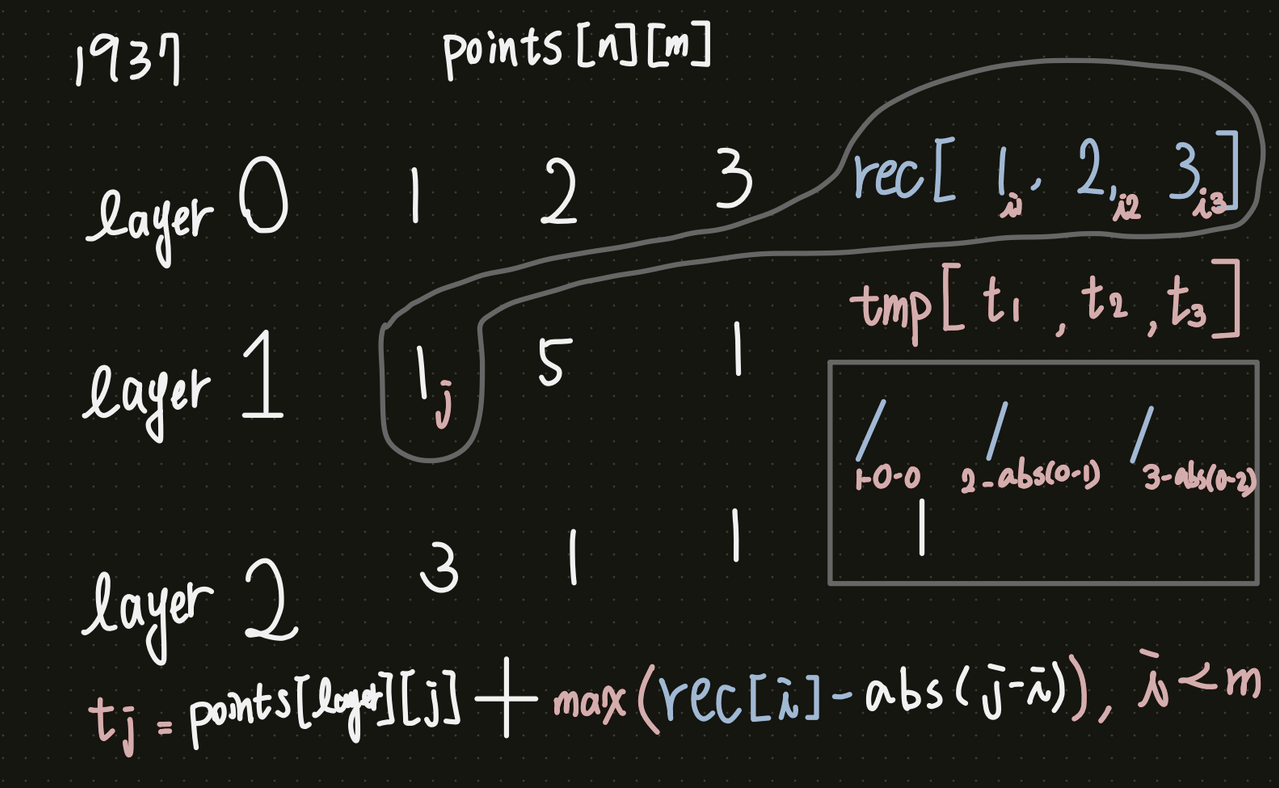 1937 points[n][m]
layer 0 1 2 3 rec[ 1, 2, 3 ]
i1 i2 i3
tmp[ t1 , t2 , t3 ]
layer 1 1 5 1
j
/ / /
1-0-0 2-abs(0-1) 3-abs(0-2)
1
layer 2 3 1 1
tj = points[layer][j] + max(rec[i] - abs(j-i)), i < m